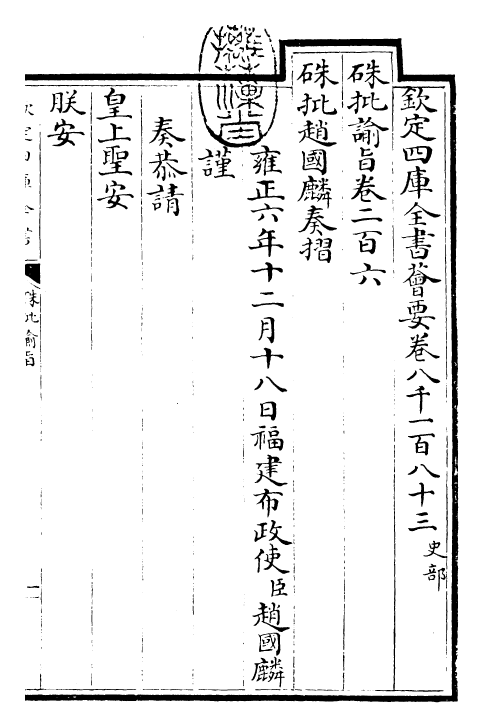 欽定四庫全書薈要卷八千一百八十三 史部
硃批諭旨卷二百六
硃批趙國麟奏摺
雍正六年十二月十八日福建布政使臣趙國麟
謹
奏恭請
皇上聖安
朕安
硃批諭旨
一